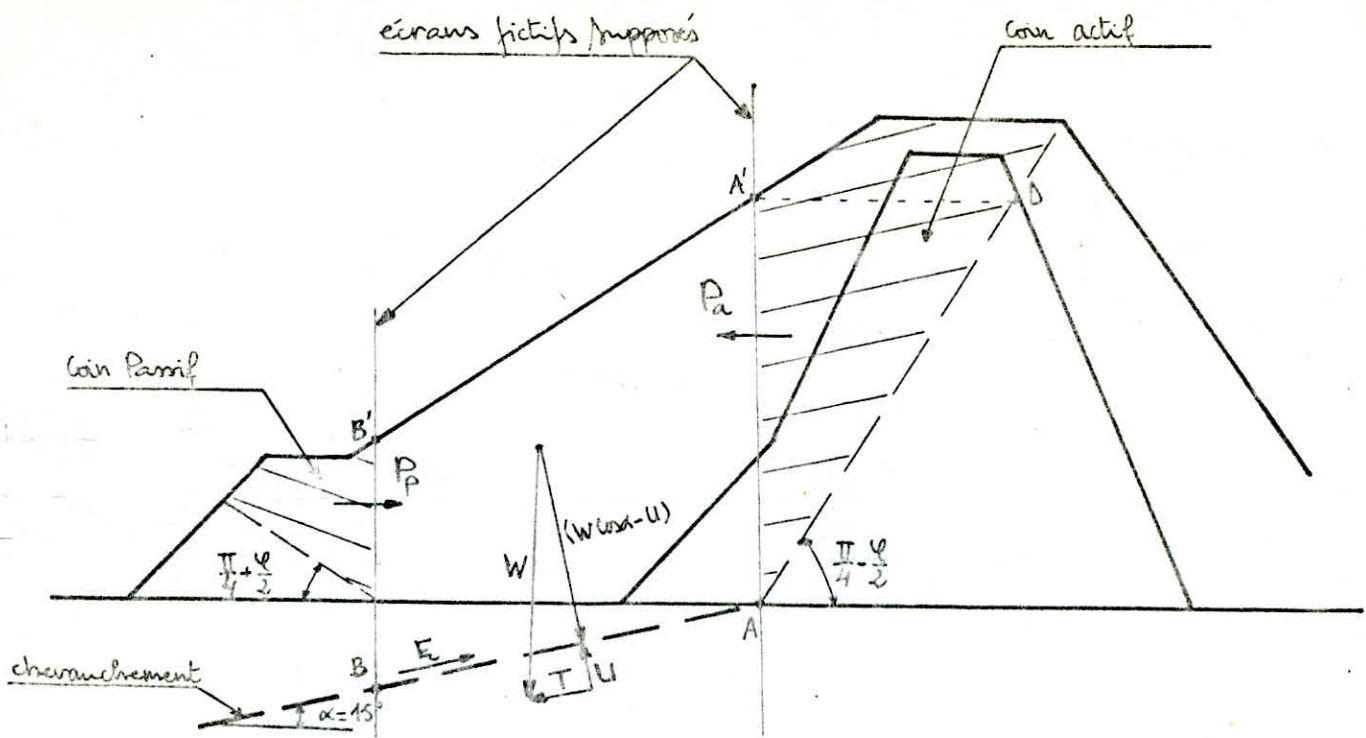 écrans fictifs supposés
coin actif
A'
D
Pa
Coin Passif
B'
Pp
(W cosα-U)
W
π/4+φ/2
π/4-φ/2
A
B
T
U
chevauchement
α=15°